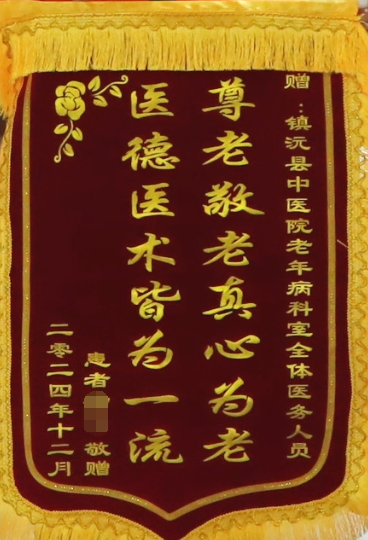 赠：镇沅县中医院老年病科室全体医务人员
尊老敬老真心为老
医德医术皆为一流
患者 敬赠
二零二四年十二月